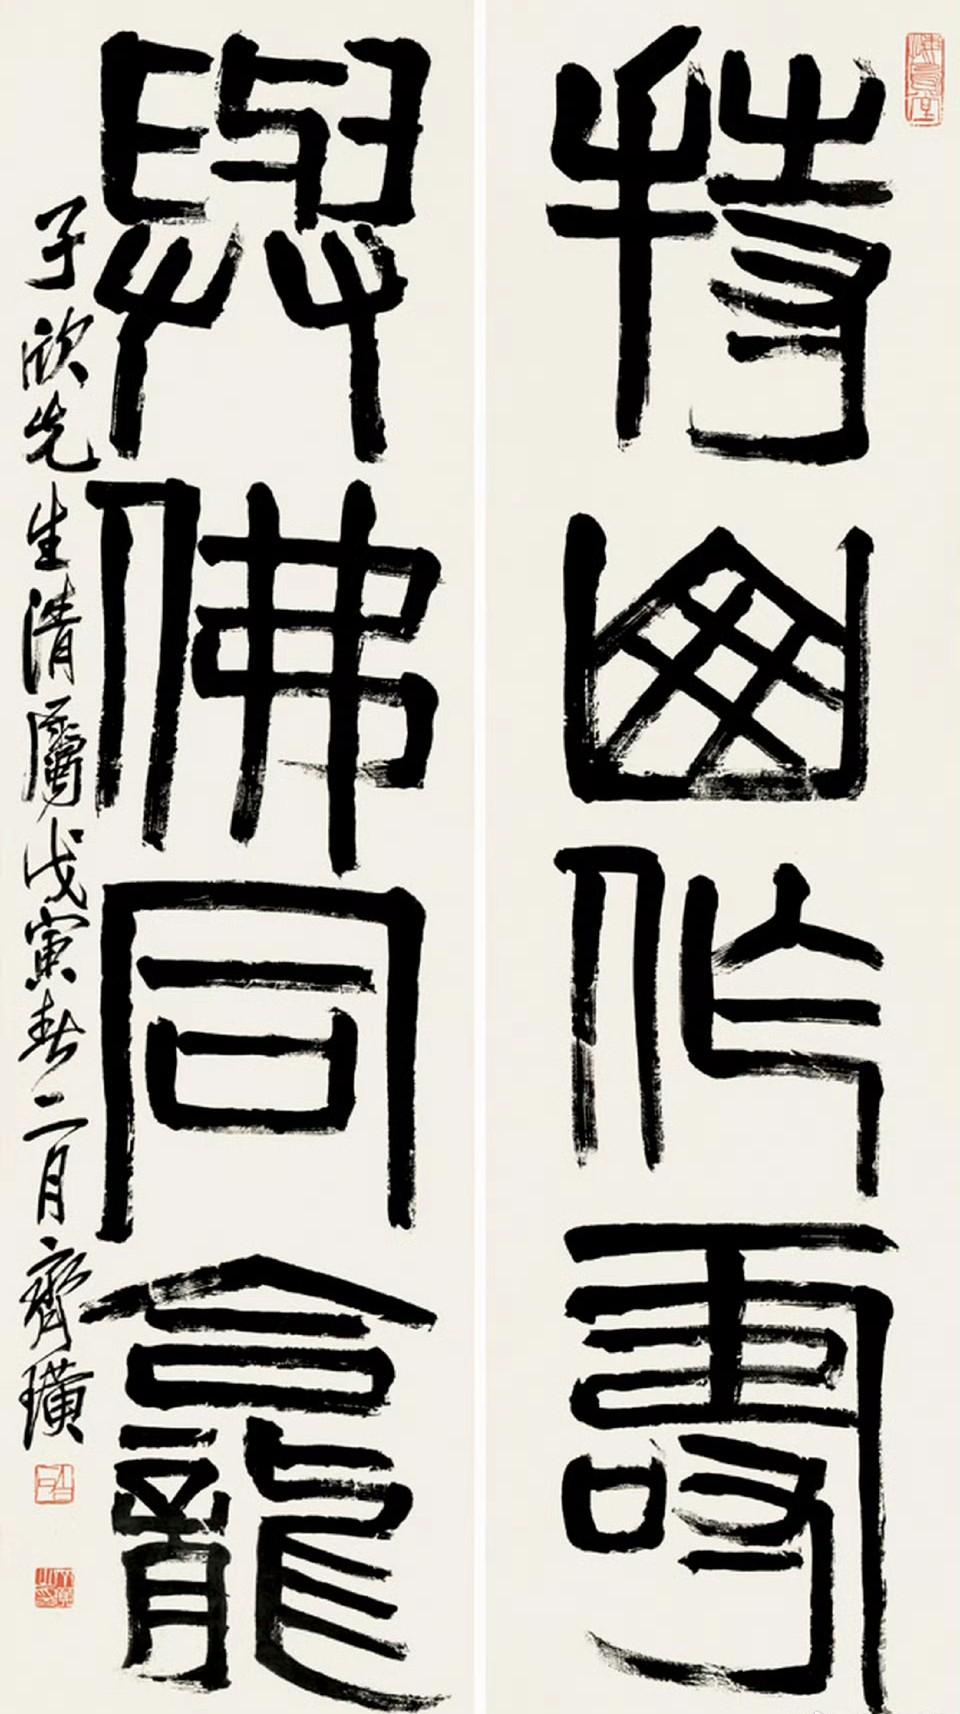 持山作壽
與佛同龕
子欣先生清屬戊寅春二月齊璜